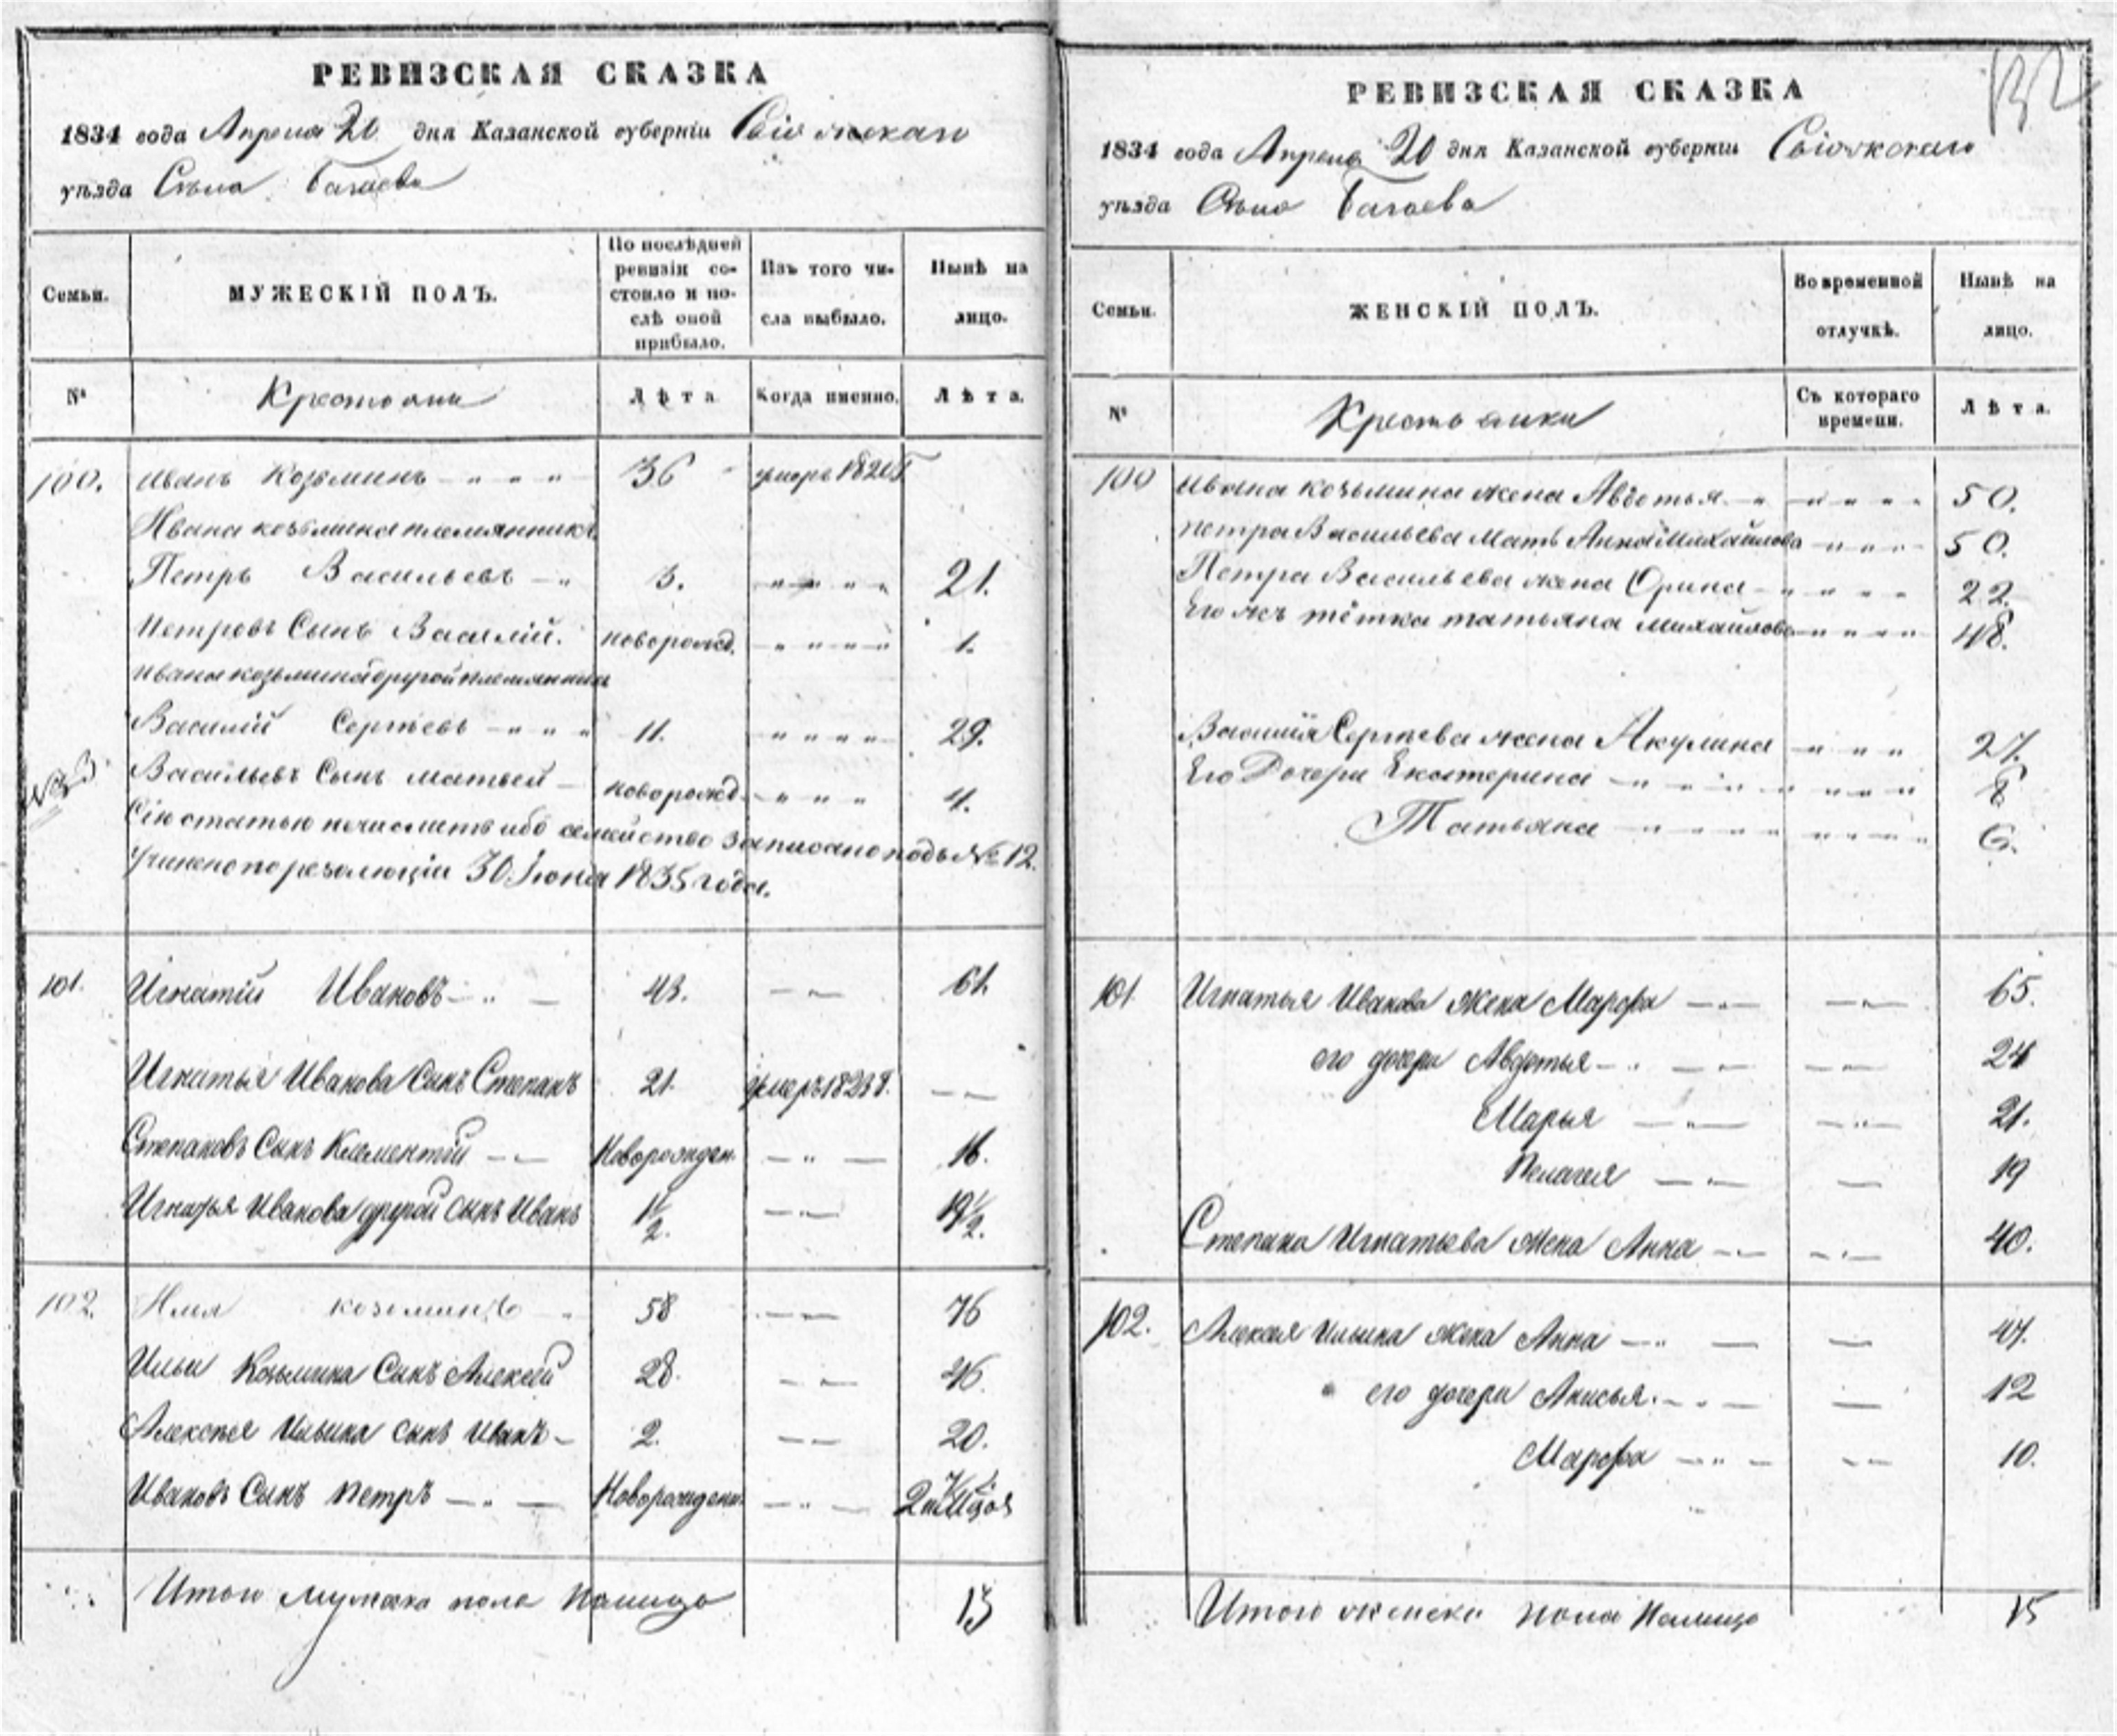 РЕВИЗСКАЯ СКАЗКА
1834 года Апреля 20 дня Казанской губерніи Свіяжскаго
уѣзда Села Багаева
Семьи.
МУЖЕСКІЙ ПОЛЪ.
По послѣдней ревизіи состояло и послѣ оной прибыло.
Изъ того числа выбыло.
Нынѣ на лицо.
№
Крестьяни
Лѣта
Когда именно.
Лѣта.
100. Иванъ Козьминъ 36 умеръ
Ивана козьмина племянникъ
Петръ Васильевъ 3. 21.
Петровъ Сынъ Василій. новорожд. 1.
Ивана козьмина другой племянникъ
Василій Сергѣевъ 11. 29.
Васильевъ Сынъ Матвей новорожд. 4.
Сію статью нечислить ибо семейство записано подъ № 12.
Учинено по резолюціи 30 Іюня 1835 года.
101. Игнатій Ивановъ 43. 61.
Игнатья Иванова Сынъ Степанъ 21. умеръ
Степановъ Сынъ Климентій Новорожден. 16.
Игнатья Иванова другой сынъ Иванъ 1½ 19½.
102. Илья козьминъ 58 76
Ильи Козьмина Сынъ Алексѣй 28. 46.
Алексѣя Ильина сынъ Иванъ 2. 20.
Ивановъ Сынъ Петръ Новорожден.
Итого мужеска пола налицо 13
132
РЕВИЗСКАЯ СКАЗКА
1834 года Апреля 20 дня Казанской губерніи Свіяжскаго
уѣзда Села Багаева
Семьи.
ЖЕНСКІЙ ПОЛЪ.
Во временной отлучкѣ.
Нынѣ на лицо.
№
Крестьянки
Съ котораго времени.
Лѣта.
100 Ивана козьмина жена Авдотья 50.
петра Васильева Мать Анна Михайлова 50.
Петра Васильева жена Орина 22.
Его жъ тётка татьяна михайлова 48.
Василія Сергѣева жена Акулина 27.
Его Дочери Екатерина 8
Татьяна 6.
101 Игнатья Иванова Жена Марфа 65.
его дочери Авдотья 24
Марья 21.
Пелагея 19
Степана Игнатьева Жена Анна 40.
102. Алексея Ильина жена Анна 47.
его дочери Анисья. 12
Марфа 10.
Итого женска пола Налицо 15